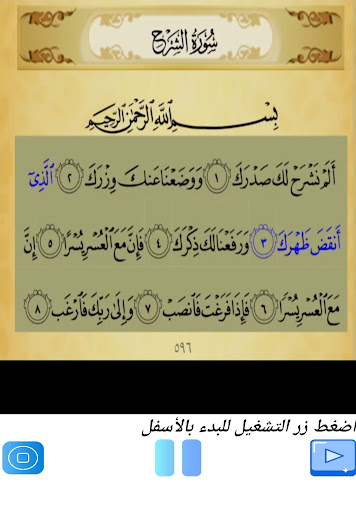 سُورَةُ الشَّرْحِ
بِسْمِ ٱللَّهِ ٱلرَّحْمَٰنِ ٱلرَّحِيمِ
أَلَمْ نَشْرَحْ لَكَ صَدْرَكَ ١ وَوَضَعْنَا عَنكَ وِزْرَكَ ٢ ٱلَّذِىٓ
أَنقَضَ ظَهْرَكَ ٣ وَرَفَعْنَا لَكَ ذِكْرَكَ ٤ فَإِنَّ مَعَ ٱلْعُسْرِ يُسْرًا ٥ إِنَّ
مَعَ ٱلْعُسْرِ يُسْرًا ٦ فَإِذَا فَرَغْتَ فَٱنصَبْ ٧ وَإِلَىٰ رَبِّكَ فَٱرْغَب ٨
٥٩٦
اضغط زر التشغيل للبدء بالأسفل